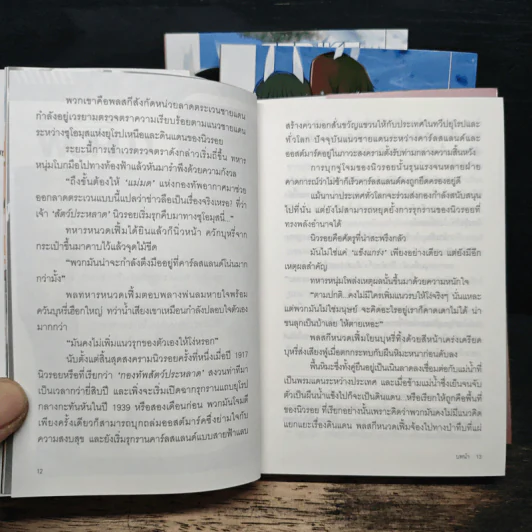 พวกเขาคือพลสกีสังกัดหน่วยลาดตระเวนชายแดน
กำลังอยู่เวรยามตรวจตราความเรียบร้อยตามแนวชายแดน
ระหว่างซูโอมุสแห่งยุโรปเหนือและดินแดนของนิวรอย
ระยะนี้การเข้าเวรตรวจตราดังกล่าวเริ่มถี่ขึ้น ทหาร
หนุ่มโบกมือไปทางท้องฟ้าแล้วหันมารำพึงด้วยความกังวล
“ถึงขั้นต้องให้ ‘แม่มด’ แห่งกองทัพอากาศมาช่วย
ออกลาดตระเวนแบบนี้แปลว่าข่าวลือเป็นเรื่องจริงเหรอ! ที่ว่า
เจ้า ‘สัตว์ประหลาด’ นิวรอยเริ่มรุกคืบมาทางซูโอมุสนี่...”
ทหารหนวดเฟิ้มได้ยินแล้วก็นิ่วหน้า ควักบุหรี่จาก
กระเป๋าขึ้นมาคาบไว้แล้วจุดไม้ขีด
“พวกมันน่าจะกำลังตึงมืออยู่ที่คาร์ลสแลนด์โน่นมาก
กว่ามั้ง”
พลทหารหนวดเฟิ้มตอบพลางพ่นลมหายใจพร้อม
ควันบุหรี่เฮือกใหญ่ ทว่าน้ำเสียงเขาเหมือนกำลังปลอบใจตัวเอง
มากกว่า
“มันคงไม่เพิ่มแนวรุกของตัวเองให้โง่หรอก”
นับตั้งแต่สิ้นสุดสงครามนิวรอยครั้งที่หนึ่งเมื่อปี 1917
นิวรอยหรือที่เรียกว่า ‘กองทัพสัตว์ประหลาด’ สงวนท่าทีมา
เป็นเวลากว่ายี่สิบปี และเพิ่งจะเริ่มเปิดฉากรุกรานแถบยุโรป
กลางกะทันหันในปี 1939 หรือสองเดือนก่อน พวกมันโจมตี
เพียงครั้งเดียวก็สามารถบุกถล่มออสต์มาร์คซึ่งย่ามใจกับ
ความสงบสุข และยังเริ่มรุกรานคาร์ลสแลนด์แบบสายฟ้าแลบ
12
สร้างความอกสั่นขวัญแขวนให้กับประเทศในทวีปยุโรปและ
ทั่วโลก ปัจจุบันแนวชายแดนระหว่างคาร์ลสแลนด์และ
ออสต์มาร์คอยู่ในภาวะสงครามตั้งรับท่ามกลางความสิ้นหวัง
การบุกจู่โจมของนิวรอยนั้นรุนแรงจนหลายฝ่าย
คาดการณ์ว่าไม่ช้าก็เร็วคาร์ลสแลนด์คงถูกยึดครองอยู่ดี
แม้นานาประเทศทั่วโลกจะร่วมส่งกองกำลังสนับสนุน
ไปที่นั่น แต่ยังไม่สามารถหยุดยั้งการรุกรานของนิวรอยที่
ทรงพลังอำนาจได้
นิวรอยคือศัตรูที่น่าสะพรึงกลัว
มันไม่ใช่แค่ ‘แข็งแกร่ง’ เพียงอย่างเดียว แต่ยังมีอีก
เหตุผลสำคัญ
ทหารหนุ่มโพล่งเหตุผลนั้นขึ้นมาด้วยความหนักใจ
“ตามปกติ...คงไม่มีใครเพิ่มแนวรบให้โง่จริงๆ นั่นแหละ
แต่พวกมันไม่ใช่มนุษย์ จะคิดอะไรอยู่เราก็คาดเดาไม่ได้ น่า
ขนลุกเป็นบ้าเลย ให้ตายเหอะ”
พลสกีหนวดเฟิ้มโยนบุหรี่ทิ้งด้วยสีหน้าเคร่งเครียด
บุหรี่ส่งเสียงฟู่เมื่อตกกระทบกับผืนหิมะหนาก่อนดับลง
พื้นหิมะซึ่งทั้งคู่ยืนอยู่เป็นเนินลาดลงเชื่อมต่อกับแม่น้ำที่
เป็นพรมแดนระหว่างประเทศ และเมื่อข้ามแม่น้ำซึ่งเย็นจนจับ
ตัวเป็นผืนน้ำแข็งไปก็จะเป็นดินแดน...หรือเรียกให้ถูกคือพื้นที่
ของนิวรอย ที่เรียกอย่างนั้นเพราะคิดว่าพวกมันคงไม่มีแนวคิด
แยกแยะเรื่องดินแดน พลสกีหนวดเฟิ้มจ้องไปทางป่าทึบที่แผ่
บทนำ 13